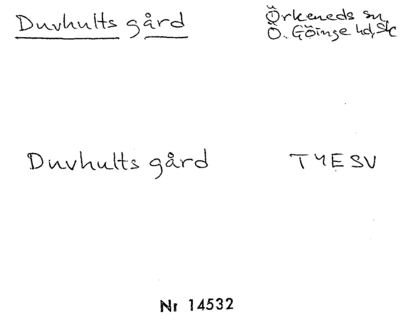 Duvhults gård
Örkeneds sn,
Ö. Göinge hd, Sk
Duvhults gård
TYESV
Nr 14532